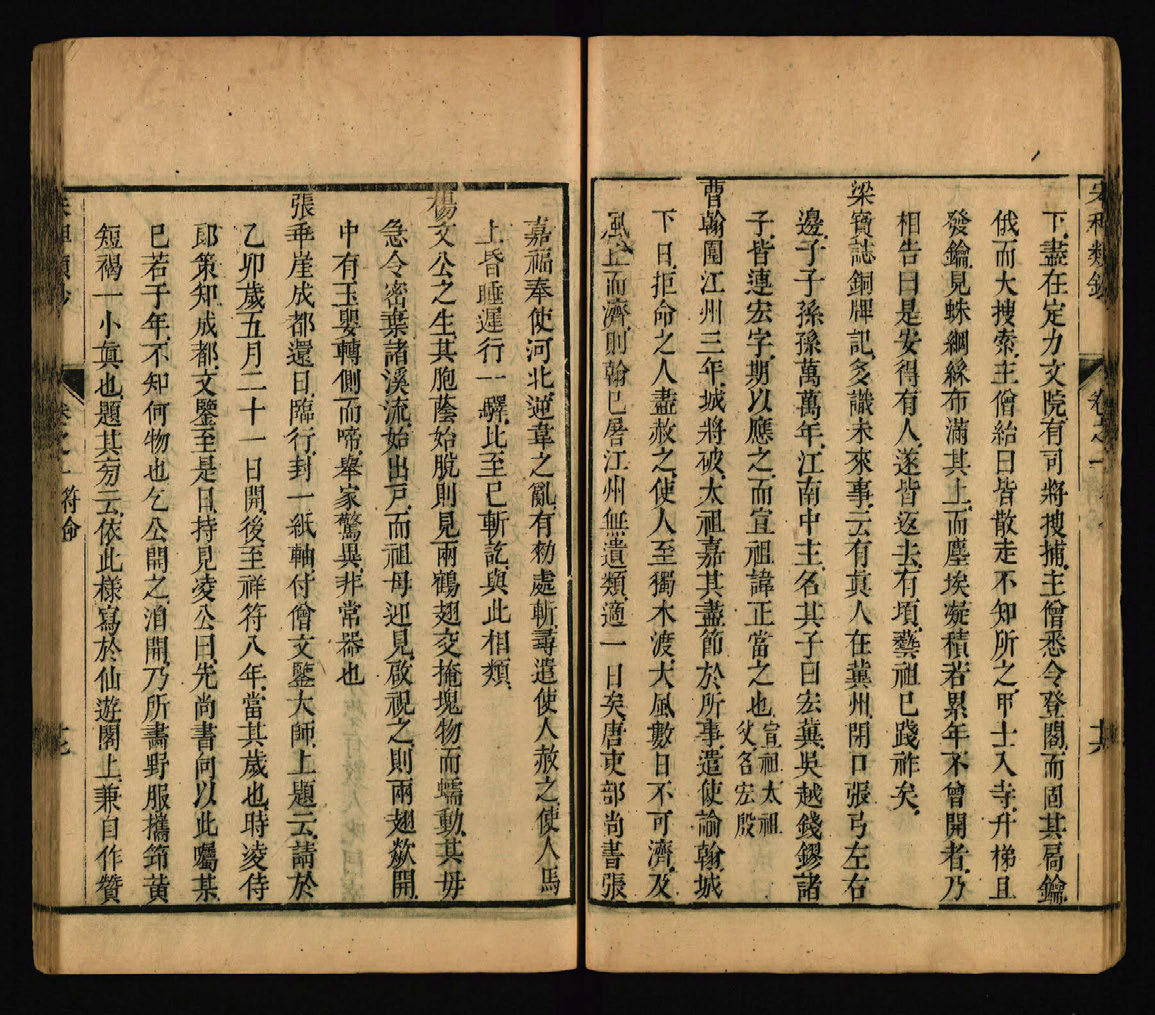 宋稗類鈔
卷之一
十六
下盡在定力文院有司將搜捕主僧悉令登閣而固其扃鑰
俄而大搜索主僧紿曰皆散走不知所之甲士入寺升梯且
發鑰見蛛網絲布滿其上而塵埃凝積若累年不曾開者乃
相告曰是安得有人遂皆返去有頃藝祖已踐祚矣
梁寶誌銅牌記多識未來事云有真人在冀州開口張弓左右
邊子子孫孫萬萬年江南中主名其子曰宏冀吳越錢鏐諸
子皆連宏字期以應之而宣祖諱正當之也宣祖太祖
父名宏殷
曹翰圍江州三年城將破太祖嘉其盡節於所事遣使諭翰城
下日拒命之人盡赦之使人至獨木渡大風數日不可濟及
風止而濟則翰已屠江州無遺類適一日矣唐吏部尚書張
嘉福奉使河北逆韋之亂有勑處斬尋遣使人赦之使人馬
上昏睡遲行一驛比至已斬訖與此相類
楊文公之生其胞蔭始脫則見兩鶴翅交掩塊物而蠕動其母
急令密棄諸溪流始出戶而祖母迎見啟視之則兩翅欻開
中有玉嬰轉側而啼舉家驚異非常器也
張乖崖成都還日臨行封一紙軸付僧文鑒大師上題云請於
乙卯歲五月二十一日開後至祥符八年當其歲也時凌侍
郎策知成都文鑒至是日持見凌公曰先尚書向以此囑某
已若干年不知何物也乞公開之洎開乃所畵野服攜筇黃
短褐一小眞也題其旁云依此樣寫於仙遊閣上兼自作贊
卷之一 符命
十七